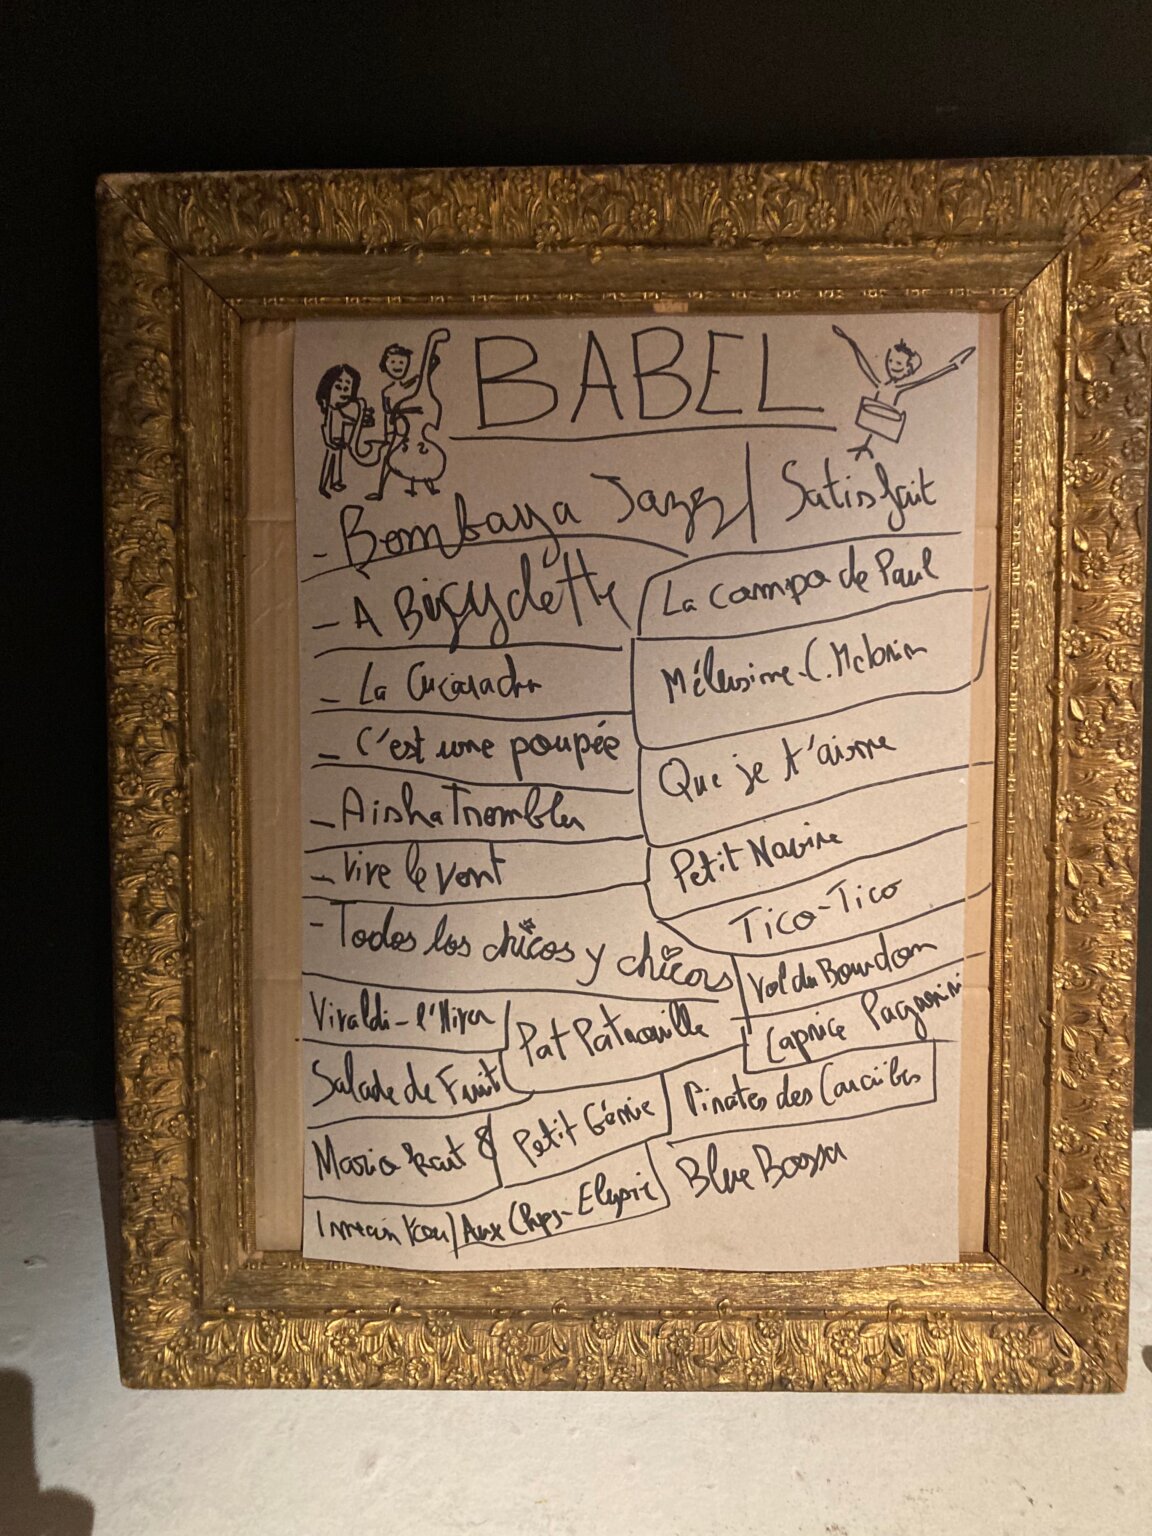 BABEL
- Bombaya Jazz / Satisfait
- À Bicyclette
La compo de Paul
- La Cucaracha
Mélusine - C. McLorin
- C'est une poupée
Que je t'aime
- Aisha Trembler
- Vive le vent
Petit Navire
Tico-Tico
- Todos los chicos y chicas
Vol du Bourdon
Vivaldi - l'Hiver
Pat Patrouille
Caprice Paganini
Salade de Fruit
Pirates des Caraïbes
Mario kart 8
Petit Génie
Blue Bossa
Aux Chps-Elysée